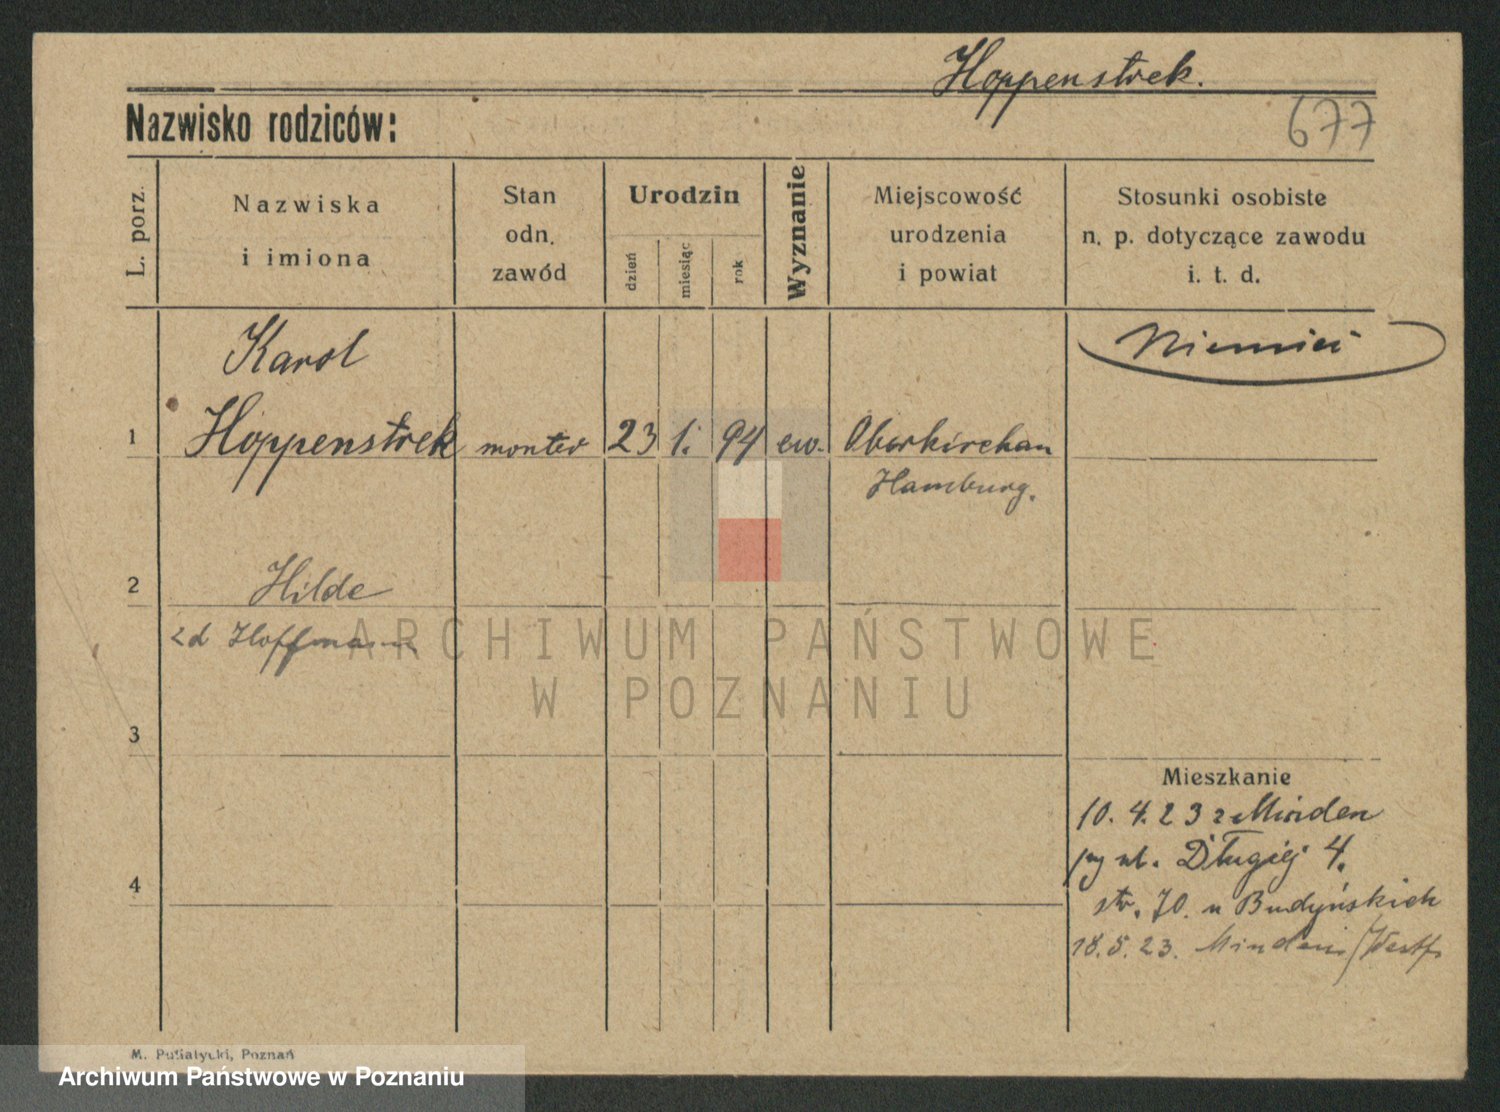 Hoppenstrek.
677
Nazwisko rodziców:
L. porz.
Nazwiska
i imiona
Stan
odn.
zawód
Urodzin
dzień
miesiąc
rok
Wyznanie
Miejscowość
urodzenia
i powiat
Stosunki osobiste
n. p. dotyczące zawodu
i. t. d.
Niemiec
Karol
1 Hoppenstrek monter 23 1. 94 ew. Oberkirchan
Hamburg.
2 Hilde
zd Hoffmann
ARCHIWUM PAŃSTWOWE
W POZNANIU
3
Mieszkanie
10. 4. 23 z Minden
ul. Długiej 4.
4
str. 70. u Budyńskich
18. 5. 23. Minden i/Westf.
M. Putiatycki, Poznań
Archiwum Państwowe w Poznaniu